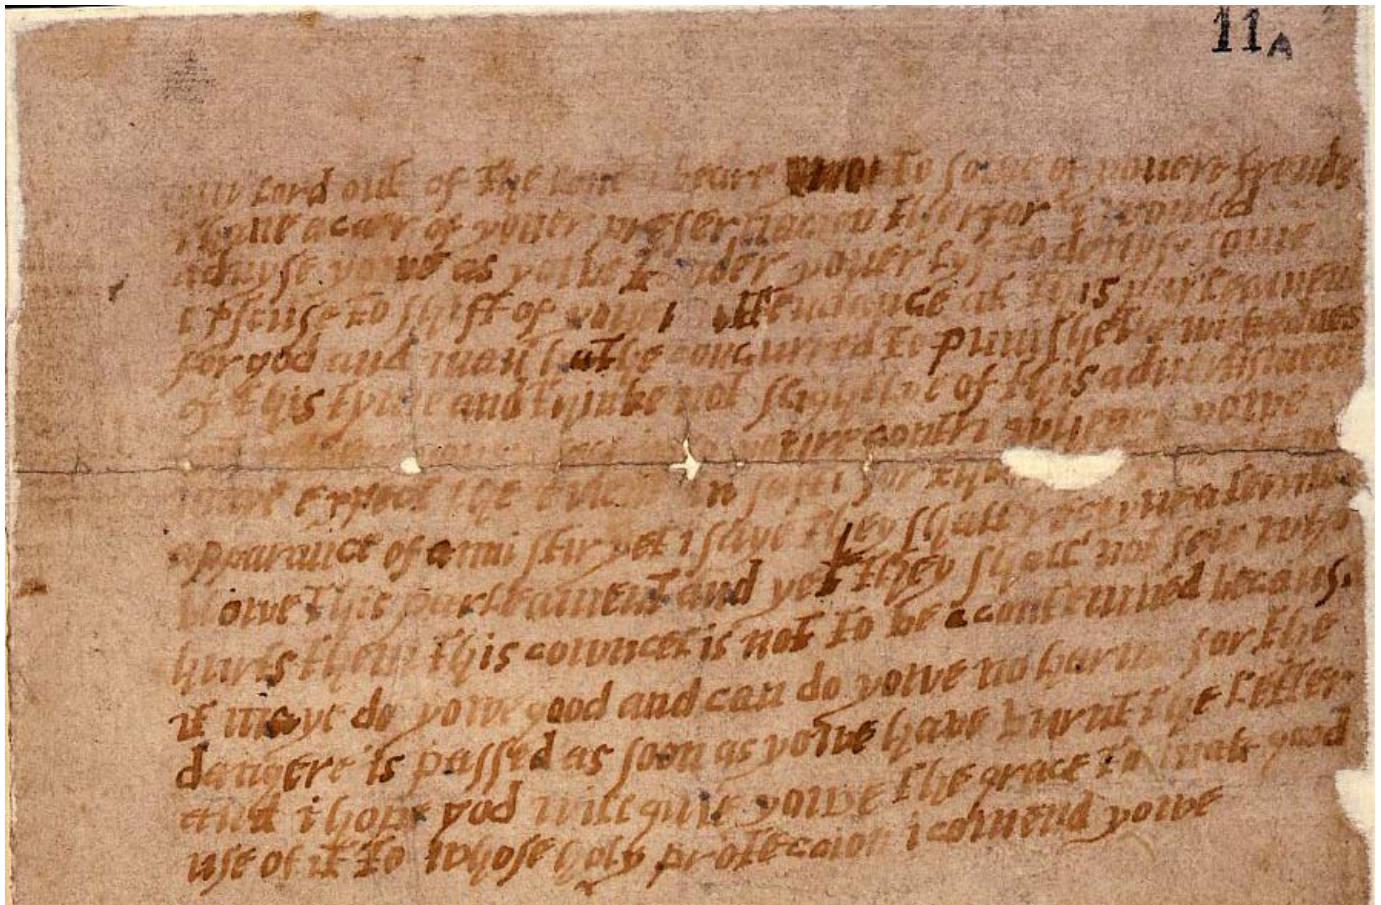 11A
lord out of the i beare to some of youere frends
i have a caer of youer preservacion therfor i would
advyse yowe as yowe tender youer lyf to devyse some
epscuse to shift of youer attendance at this parleament
for god and man hathe concurred to punishe the wickednes
of this tyme and thinke not slightlye of this advertisment
youre contri wheare yowe
expect the event in safti for
apparance of anni stir yet i saye they shall receyve a terrible
blowe this parleament and yet they shall not seie who
hurts them this cowncel is not to be acontemned because
it maye do yowe good and can do yowe no harme for the
dangere is passed as soon as yowe have burnt the letter
and i hope god will give yowe the grace to mak good
use of it to whose holy proteccion i comend yowe